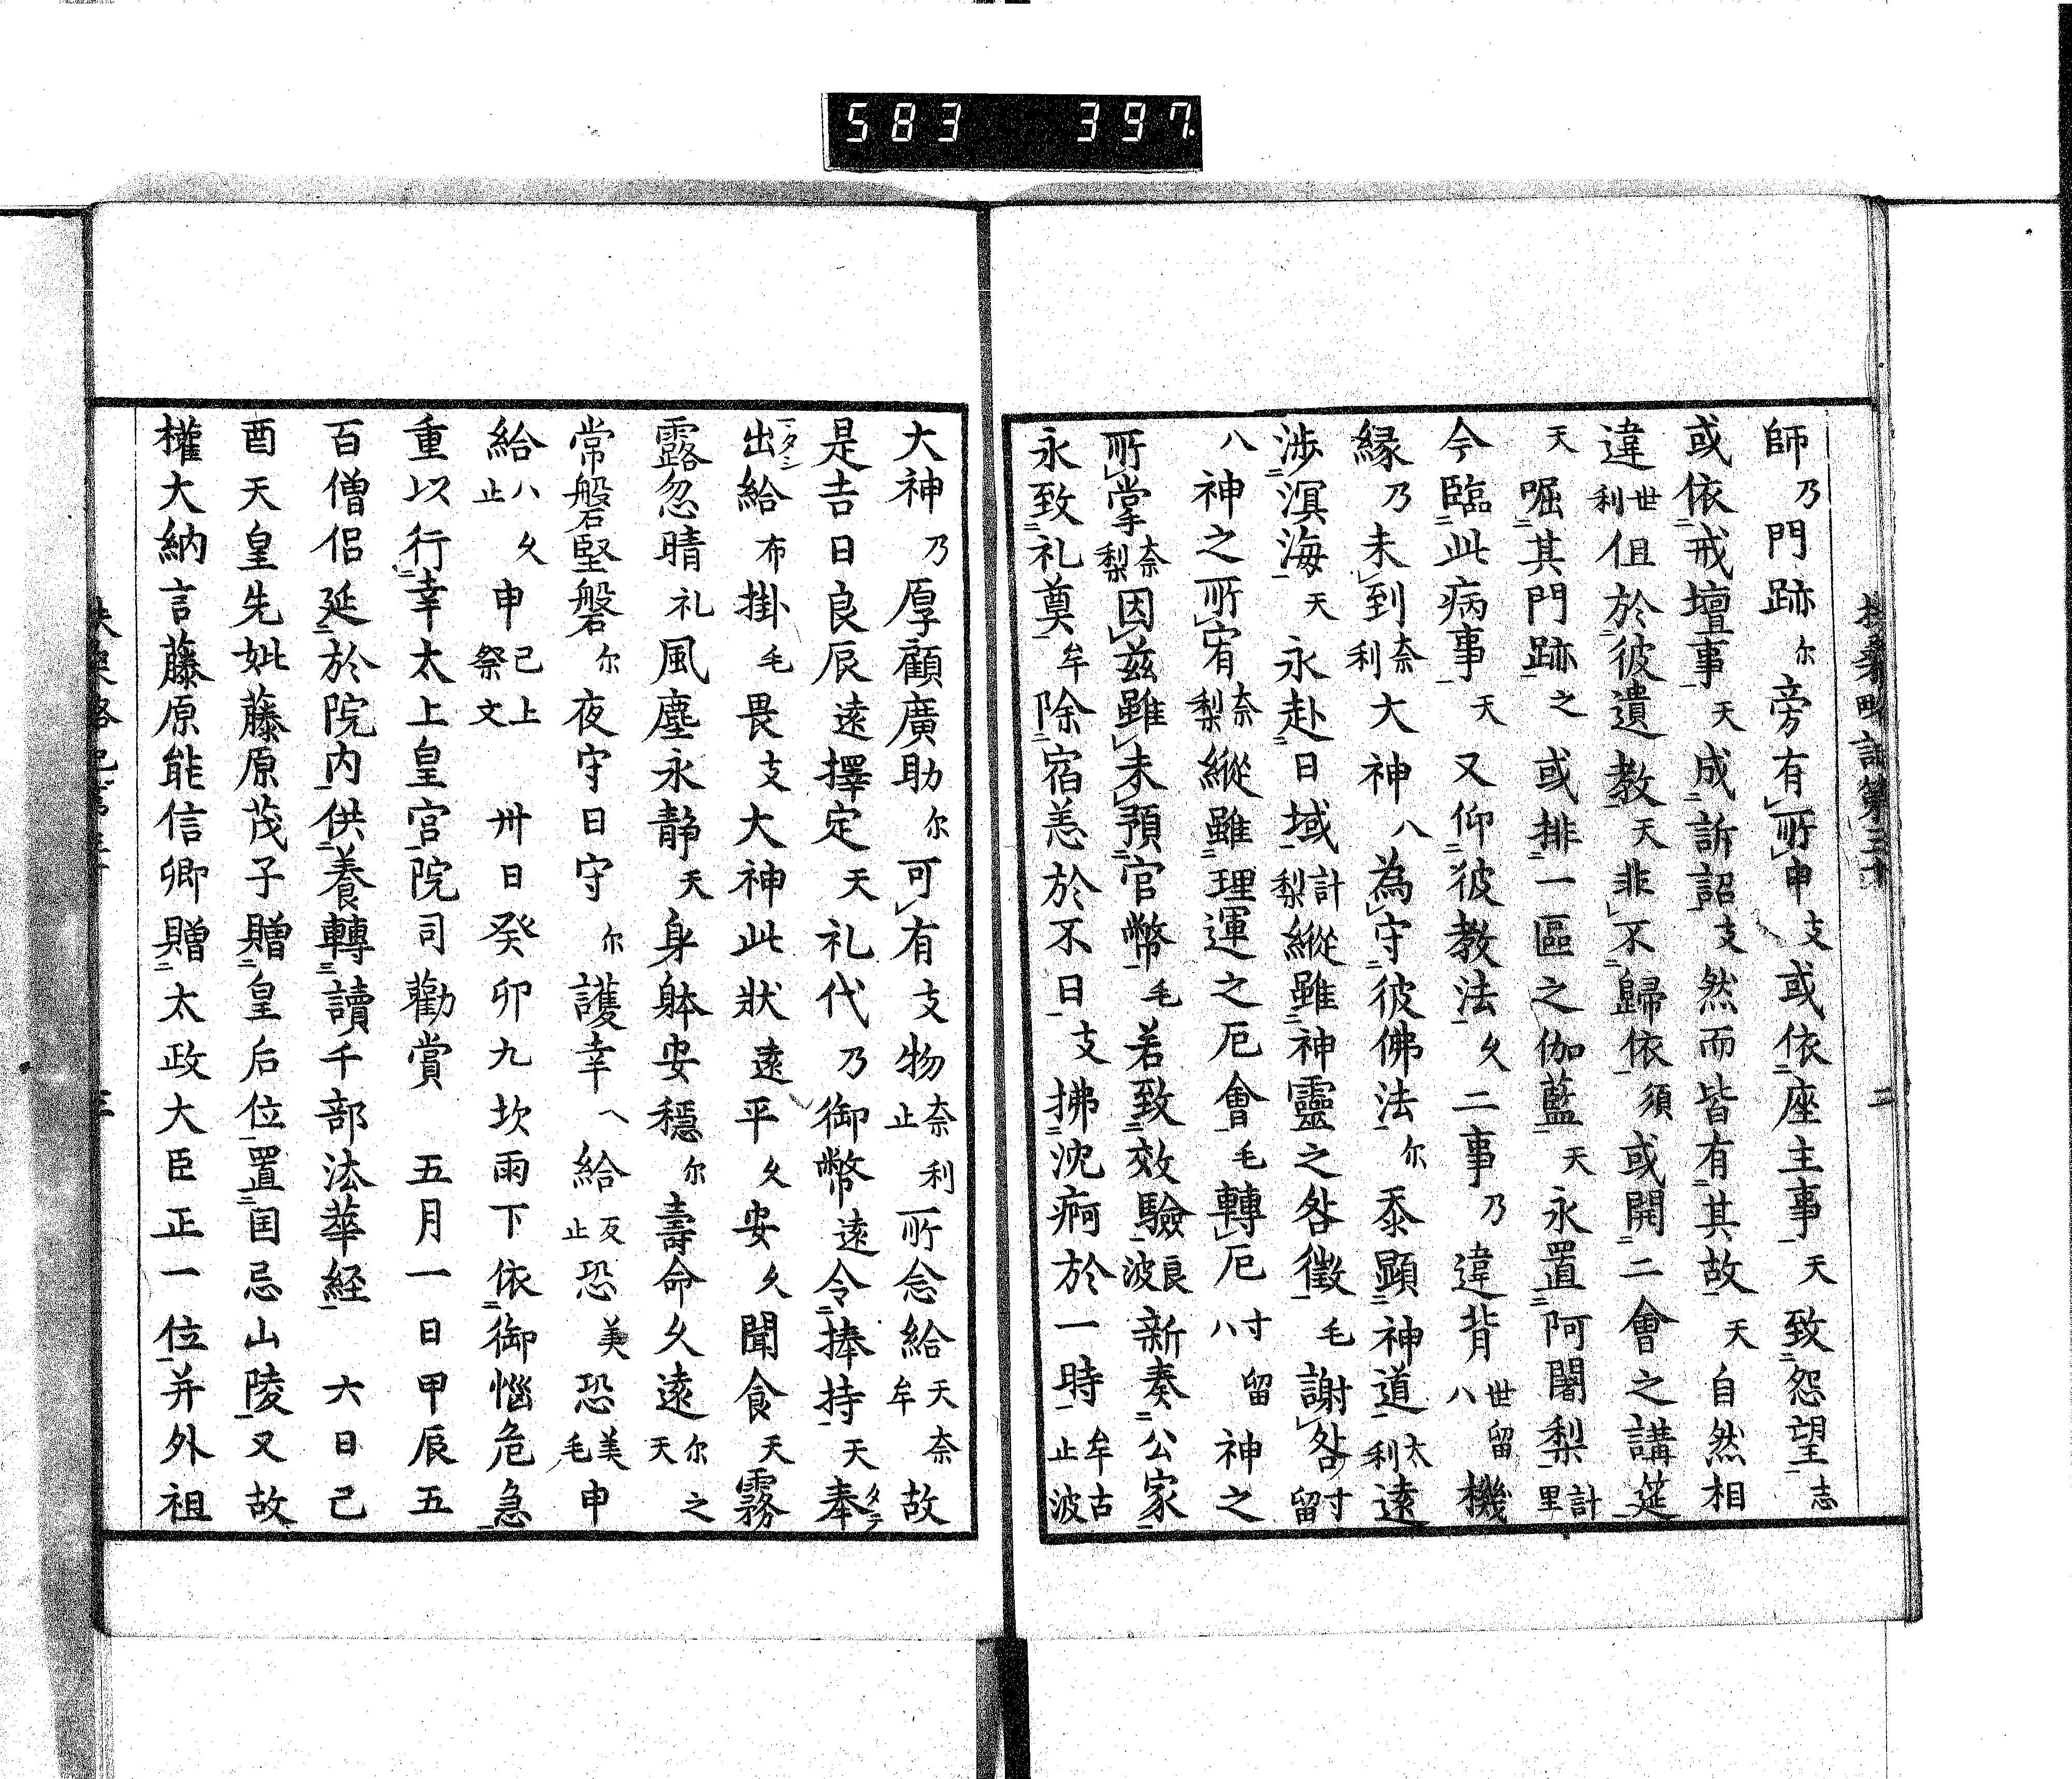 583 397.
扶桑略記第三十 二
師乃門跡尓旁有所申支或依座主事天致怨望志
或依戒壇事天成訴詔支然而皆有其故天自然相
違世利但於彼遺教天非不歸依須或開二會之講筵
天崛其門跡之或排一區之伽藍天永置阿闍梨計里
今臨此病事天又仰彼教法久二事乃違背世留八機
縁乃未到奈利大神八為守彼佛法尓忝顯神道太利遠
渉溟海天永赴日域計梨縱雖神靈之咎徴毛謝咎寸留
八神之所宥奈梨縱雖理運之厄會毛轉厄寸留八神之
所掌奈梨因茲雖未預官幣毛若致效驗良波新奏公家
永致礼奠牟除宿恙於不日支拂沈痾於一時牟止古波
大神乃厚顧廣助尓可有支物奈止利所念給天牟奈故
是吉日良辰遠擇定天礼代乃御幣遠令捧持天奉
出給布掛毛畏支大神此狀遠平久安久聞食天霧
露忽晴礼風塵永静天身躰安穩尓壽命久遠尓天之
常磐堅磐尓夜守日守尓護幸へ給止反恐美恐美毛申
給八止久申已上祭文 卅日癸卯九坎雨下依御惱危急
重以行幸太上皇宮院司勸賞 五月一日甲辰五
百僧侶延於院内供養轉讀千部法華経 六日己
酉天皇先妣藤原茂子贈皇后位置国忌山陵又故
權大納言藤原能信卿贈太政大臣正一位并外祖